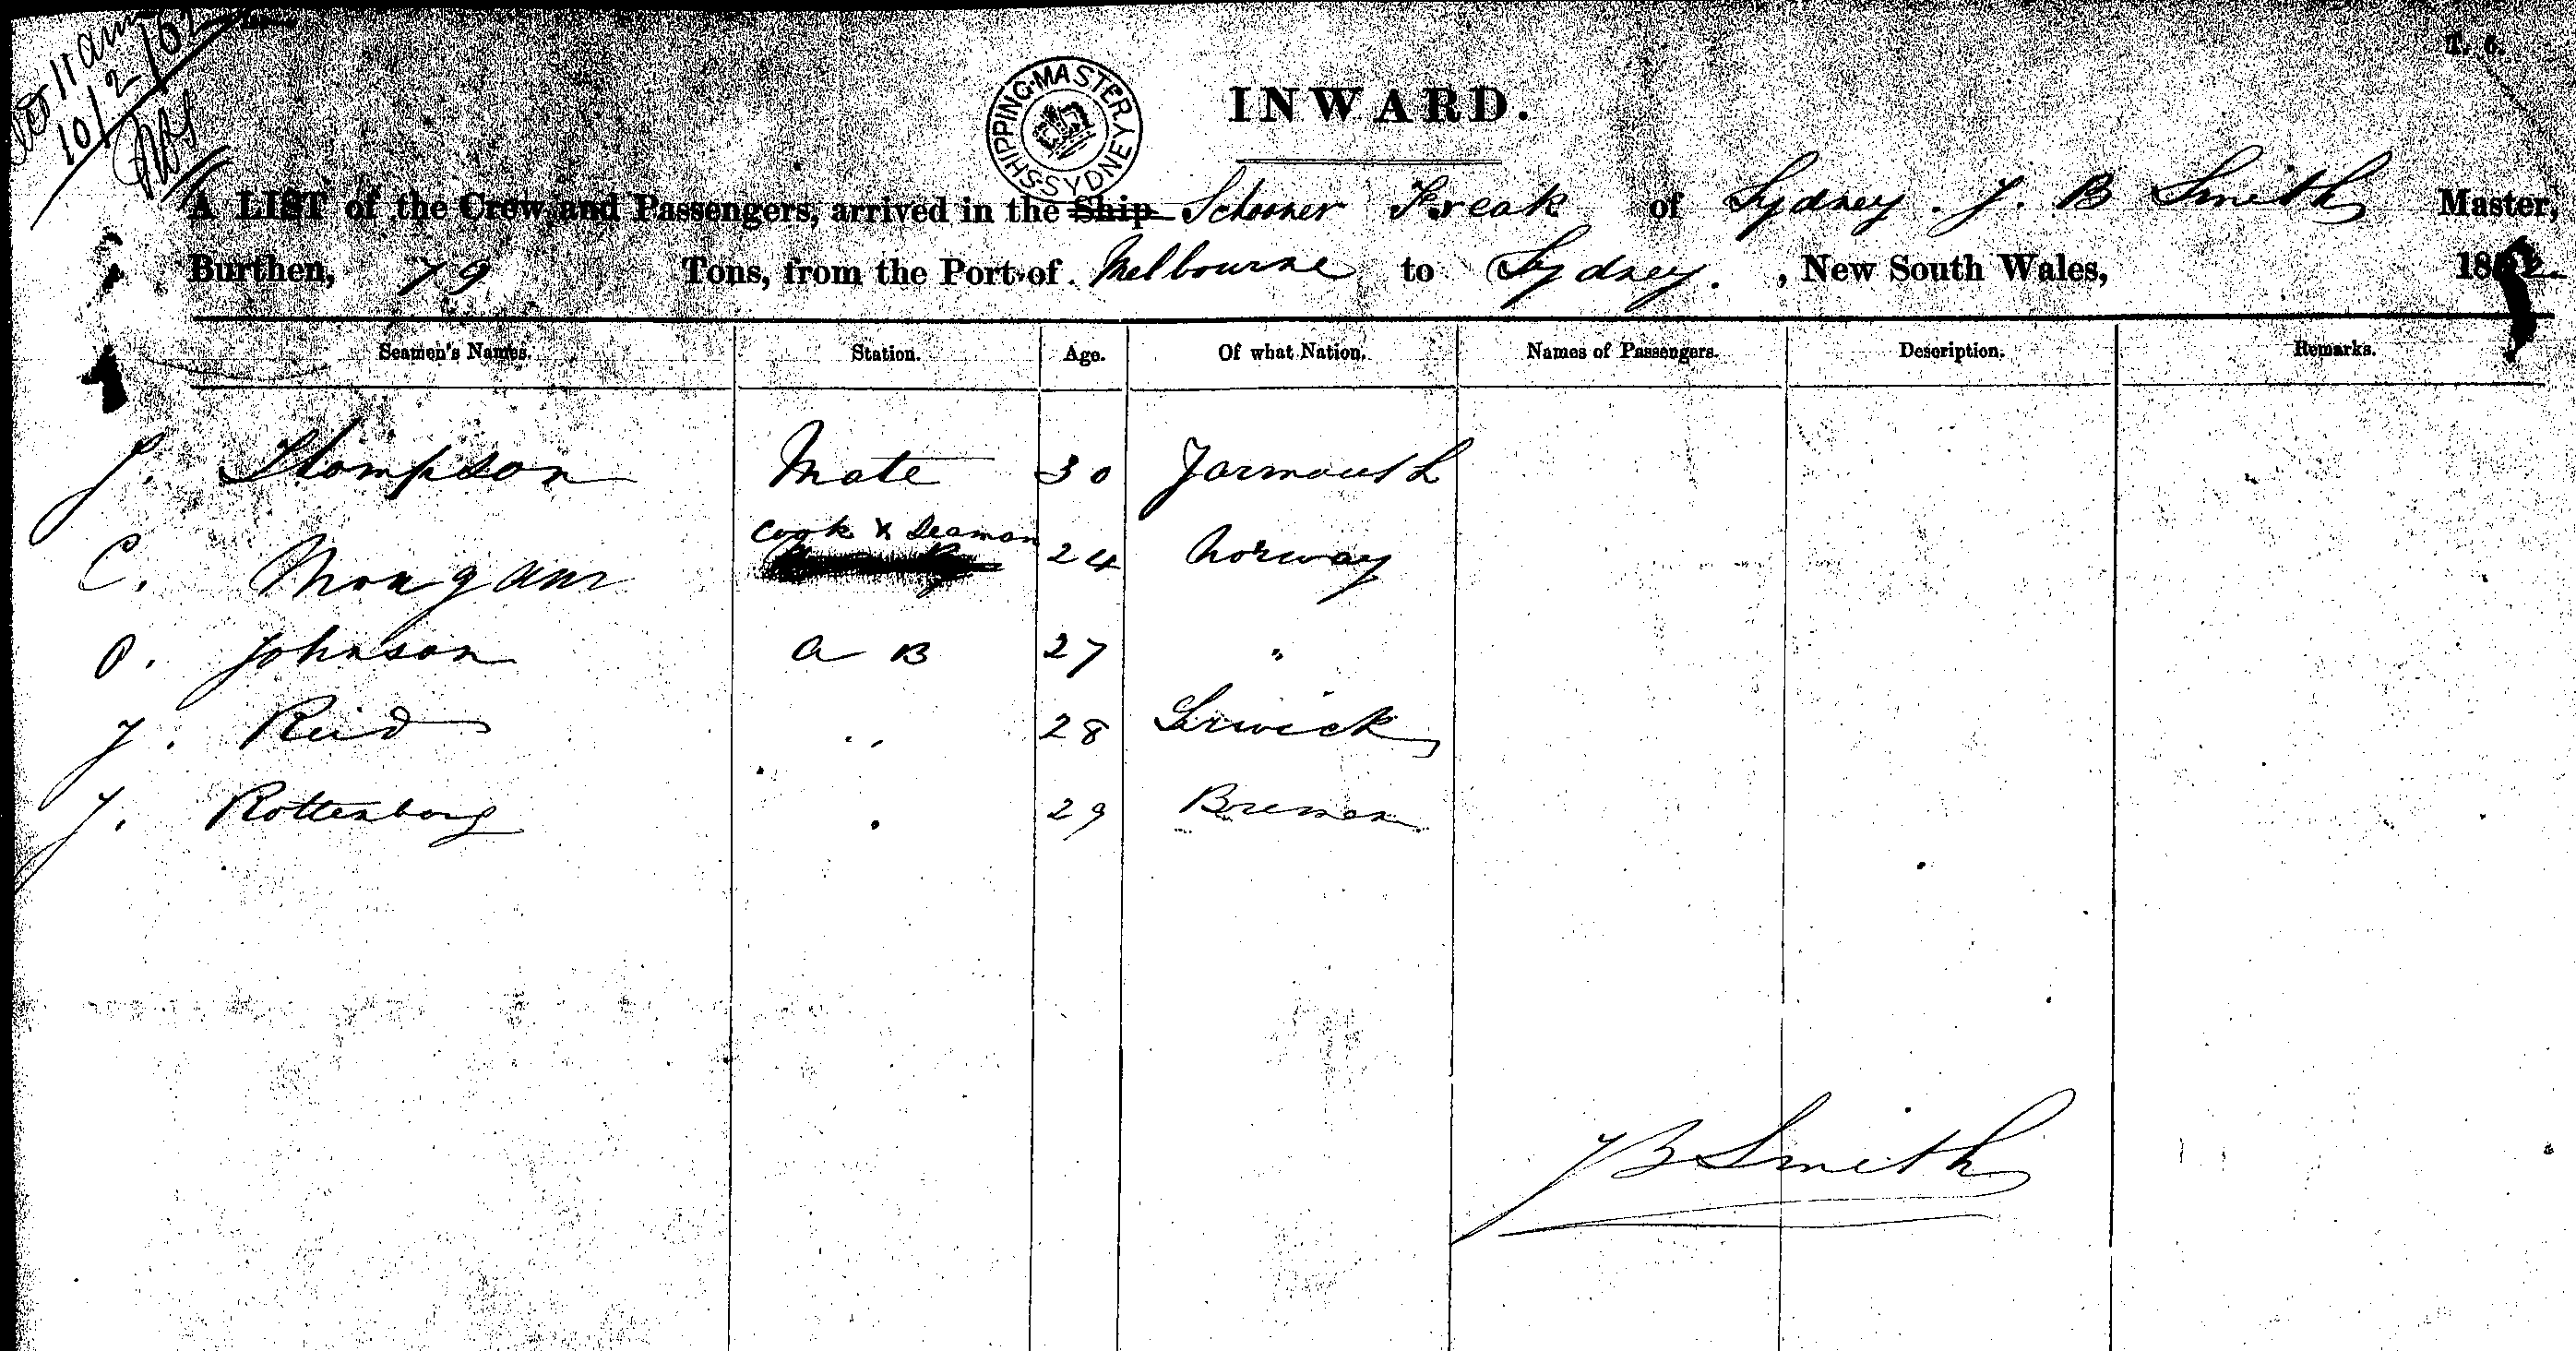 11 am
10/2/62
T. 6.
SHIPPING MASTER SYDNEY
INWARD.
A LIST of the Crew and Passengers, arrived in the Ship Schooner Freak of Sydney. J. B Smith Master,
Burthen, 79 Tons, from the Port of Melbourne to Sydney. , New South Wales, 1862
Seamen's Names. Station. Age. Of what Nation. Names of Passengers. Description. Remarks.
J. Thompson Mate 30 Yarmouth
Cook & Seaman
C. Morgann 24 Norway
O. Johnson A B 27 "
J. Reid " 28 Lerwick
J. Rottenborg " 29 Bremen
J B Smith